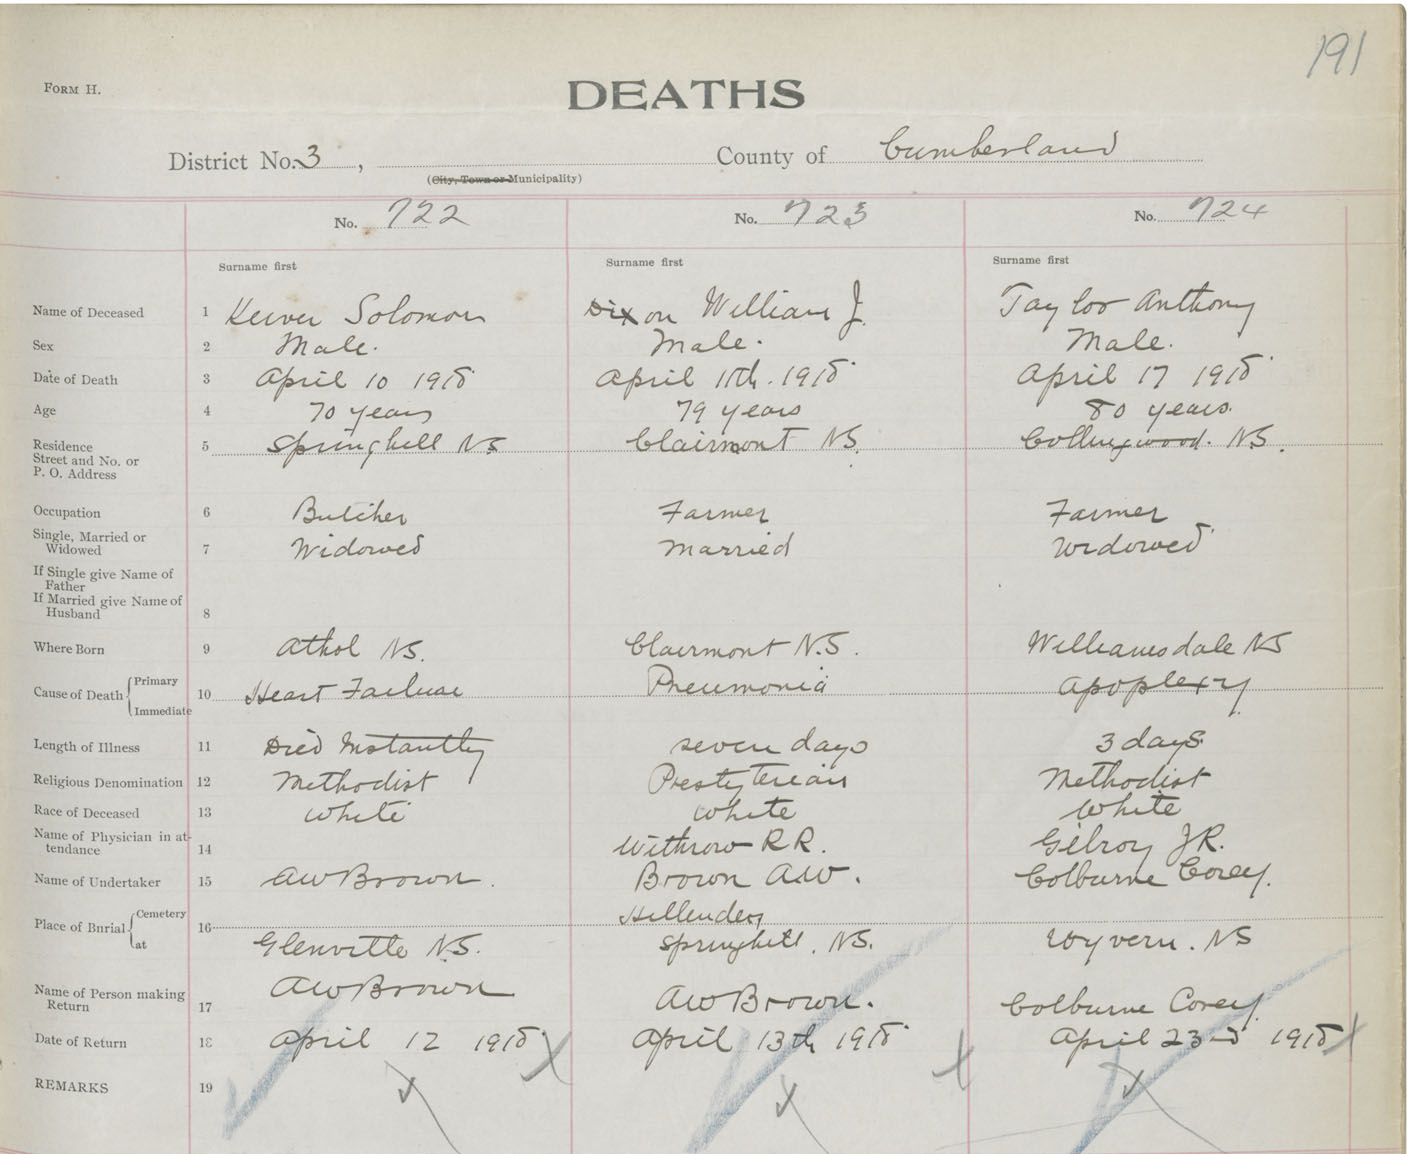 191
FORM H.
DEATHS
District No. 3, County of Cumberland
(City, Town or Municipality)
No. 722 No. 723 No. 724
Surname first Surname first Surname first
Name of Deceased 1 Keiver Solomon Dixon William J. Taylor Anthony
Sex 2 Male. Male. Male.
Date of Death 3 April 10 1918 April 11th. 1918 April 17 1918
Age 4 70 years 79 years 80 years.
Residence
Street and No. or
P. O. Address 5 Springhill NS Clairmont NS. Collingwood. NS.
Occupation 6 Butcher Farmer Farmer
Single, Married or
Widowed 7 Widowed Married Widowed
If Single give Name of
Father
If Married give Name of
Husband 8
Where Born 9 Athol NS. Clairmont N.S. Williamsdale NS
Cause of Death { Primary
Immediate 10 Heart Failure Pneumonia Apoplexy
Length of Illness 11 Died Instantly seven days 3 days
Religious Denomination 12 Methodist Presbyterian Methodist
Race of Deceased 13 White White White
Name of Physician in at-
tendance 14 Withrow R R. Gilroy J R.
Name of Undertaker 15 A W Brown. Brown A W. Colburne Corey.
Place of Burial { Cemetery 16 Hillside
at Glenville N.S. Springhill, NS. Wyvern. NS
Name of Person making
Return 17 A W Brown A W Brown. Colburne Corey
Date of Return 18 April 12 1918 April 13th 1918 April 23rd 1918
REMARKS 19